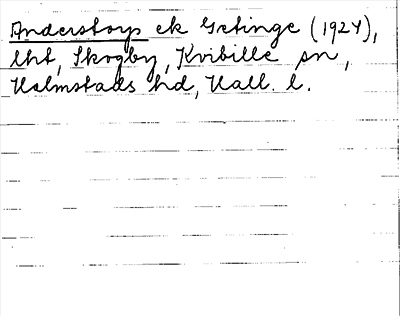 Anderstorp ek Getinge (1924),
lht, Skogby, Kvibille sn,
Halmstads hd, Hall. l.